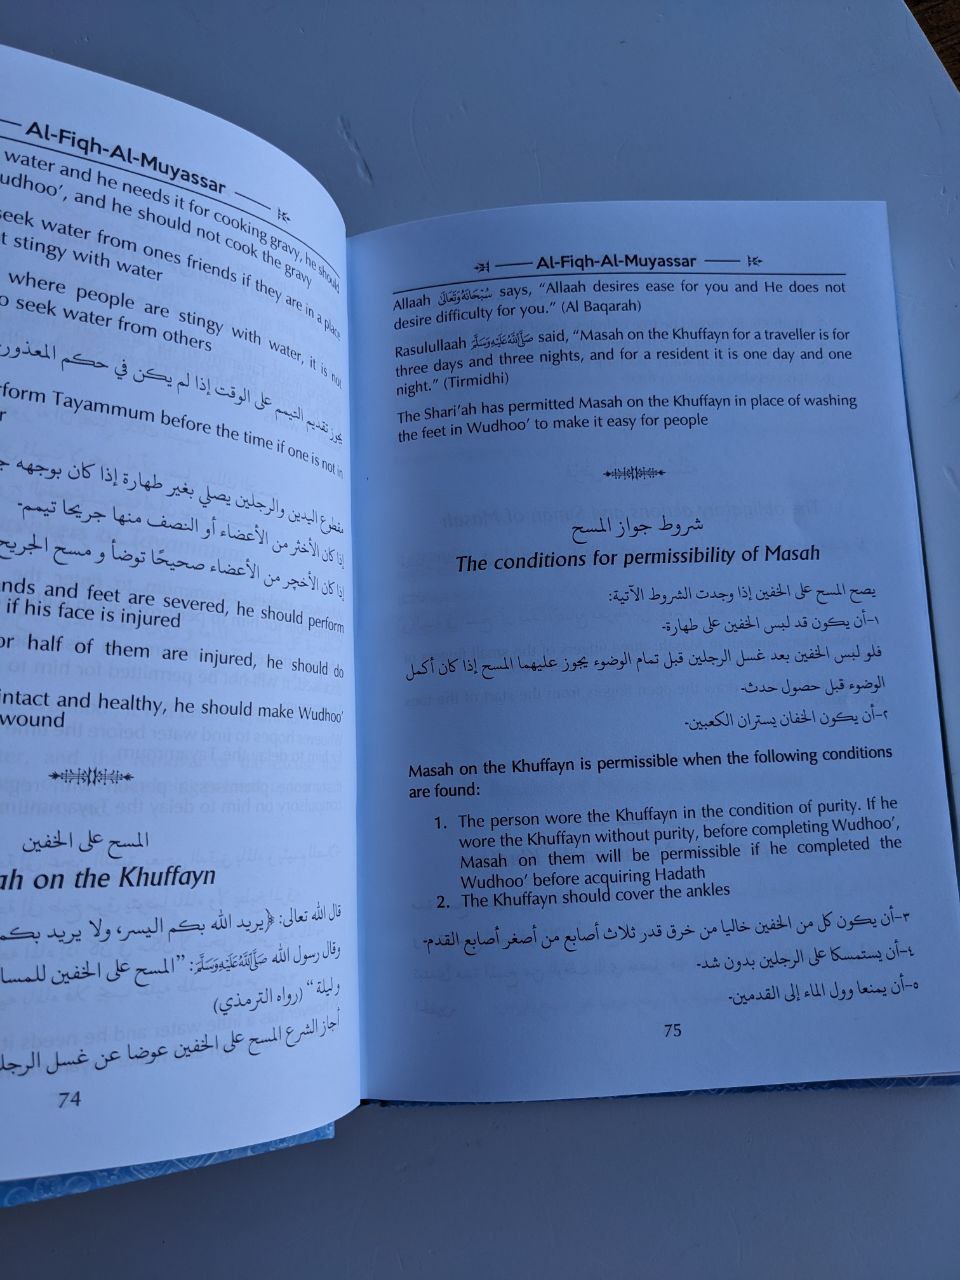 Al-Fiqh-Al-Muyassar
water and he needs it for cooking gravy, he should
udhoo', and he should not cook the gravy
seek water from ones friends if they are in a place
t stingy with water
where people are stingy with water, it is not
o seek water from others
يجوز تقديم التيمم على الوقت إذا لم يكن في حكم المعذور
rform Tayammum before the time if one is not in
r
مقطوع اليدين والرجلين يصلي بغير طهارة إذا كان بوجهه
إذا كان الأكثر من الأعضاء أو النصف منها جريحا تيمم-
إذا كان الأخچر من الأعضاء صحيحًا توضأ و مسح الجريح
nds and feet are severed, he should perform
if his face is injured
or half of them are injured, he should do
intact and healthy, he should make Wudhoo'
wound
المسح على الخفين
ah on the Khuffayn
قال الله تعالى: ﴿يريد الله بكم اليسر، ولا يريد بكم
وقال رسول الله ﷺ: "المسح على الخفين للمسا
وليلة" (رواه الترمذي)
أجاز الشرع المسح على الخفين عوضا عن غسل الرجل
74
Al-Fiqh-Al-Muyassar
Allaah سُبْحَانَهُ وَتَعَالَى says, "Allaah desires ease for you and He does not
desire difficulty for you." (Al Baqarah)
Rasulullaah ﷺ said, "Masah on the Khuffayn for a traveller is for
three days and three nights, and for a resident it is one day and one
night." (Tirmidhi)
The Shari'ah has permitted Masah on the Khuffayn in place of washing
the feet in Wudhoo' to make it easy for people
شروط جواز المسح
The conditions for permissibility of Masah
يصح المسح على الخفين إذا وجدت الشروط الآتية:
١-أن يكون قد لبس الخفين على طهارة-
فلو لبس الخفين بعد غسل الرجلين قبل تمام الوضوء يجوز عليهما المسح إذا كان أكمل
الوضوء قبل حصول حدث-
٢-أن يكون الخفان يستران الكعبين-
Masah on the Khuffayn is permissible when the following conditions
are found:
1. The person wore the Khuffayn in the condition of purity. If he
wore the Khuffayn without purity, before completing Wudhoo',
Masah on them will be permissible if he completed the
Wudhoo' before acquiring Hadath
2. The Khuffayn should cover the ankles
٣-أن يكون كل من الخفين خاليا من خرق قدر ثلاث أصابع من أصغر أصابع القدم-
٤-أن يستمسكا على الرجلين بدون شد-
٥-أن يمنعا وول الماء إلى القدمين-
75